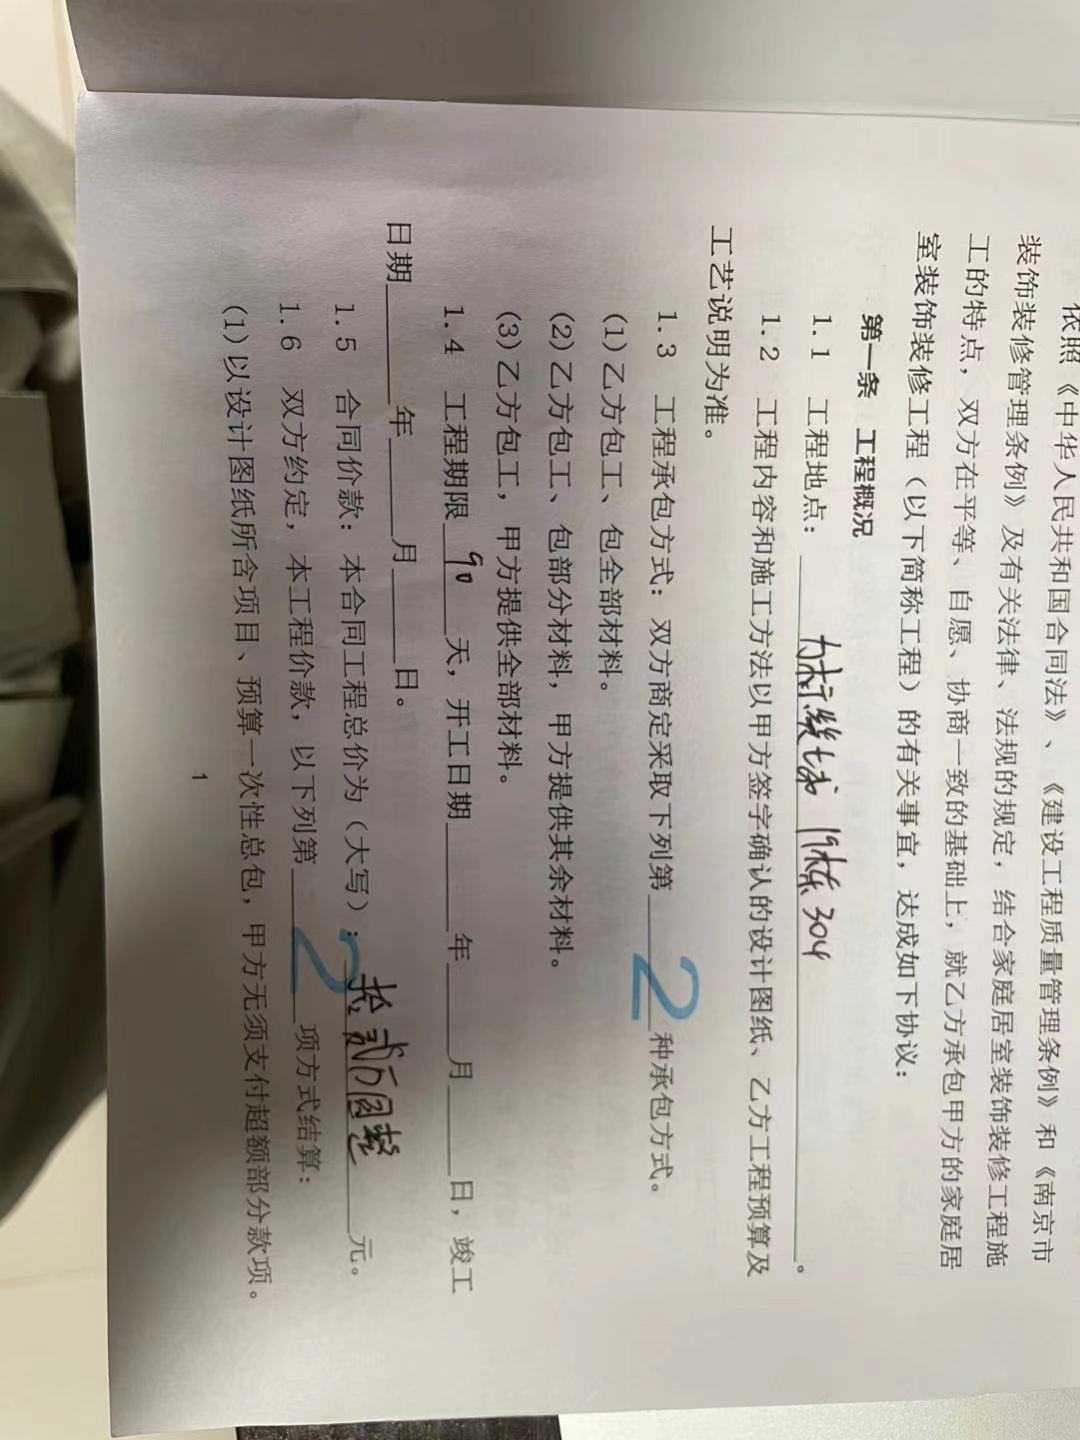 依照《中华人民共和国合同法》、《建设工程质量管理条例》和《南京市
装饰装修管理条例》及有关法律、法规的规定，结合家庭居室装饰装修工程施
工的特点，双方在平等、自愿、协商一致的基础上，就乙方承包甲方的家庭居
室装饰装修工程（以下简称工程）的有关事宜，达成如下协议：
第一条 工程概况
1.1 工程地点：19栋304。
1.2 工程内容和施工方法以甲方签字确认的设计图纸、乙方工程预算及
工艺说明为准。
1.3 工程承包方式：双方商定采取下列第2种承包方式。
(1)乙方包工、包全部材料。
(2)乙方包工、包部分材料，甲方提供其余材料。
(3)乙方包工，甲方提供全部材料。
1.4 工程期限90天，开工日期____年____月____日，竣工
日期____年____月____日。
1.5 合同价款：本合同工程总价为（大写）：元。
1.6 双方约定，本工程价款，以下列第2项方式结算：
(1)以设计图纸所含项目、预算一次性总包，甲方无须支付超额部分款项。
1